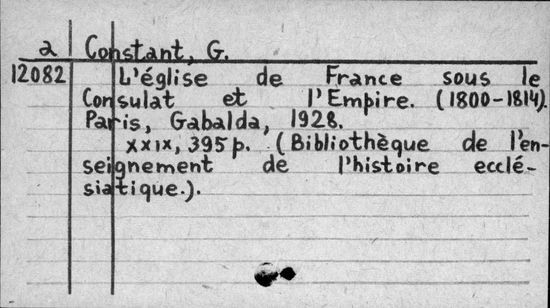 a Constant, G.
12082 L'église de France sous le
Consulat et l'Empire. (1800-1814).
Paris, Gabalda, 1928.
XXIX, 395 p. (Bibliothèque de l'en-
seignement de l'histoire ecclé-
siatique.).